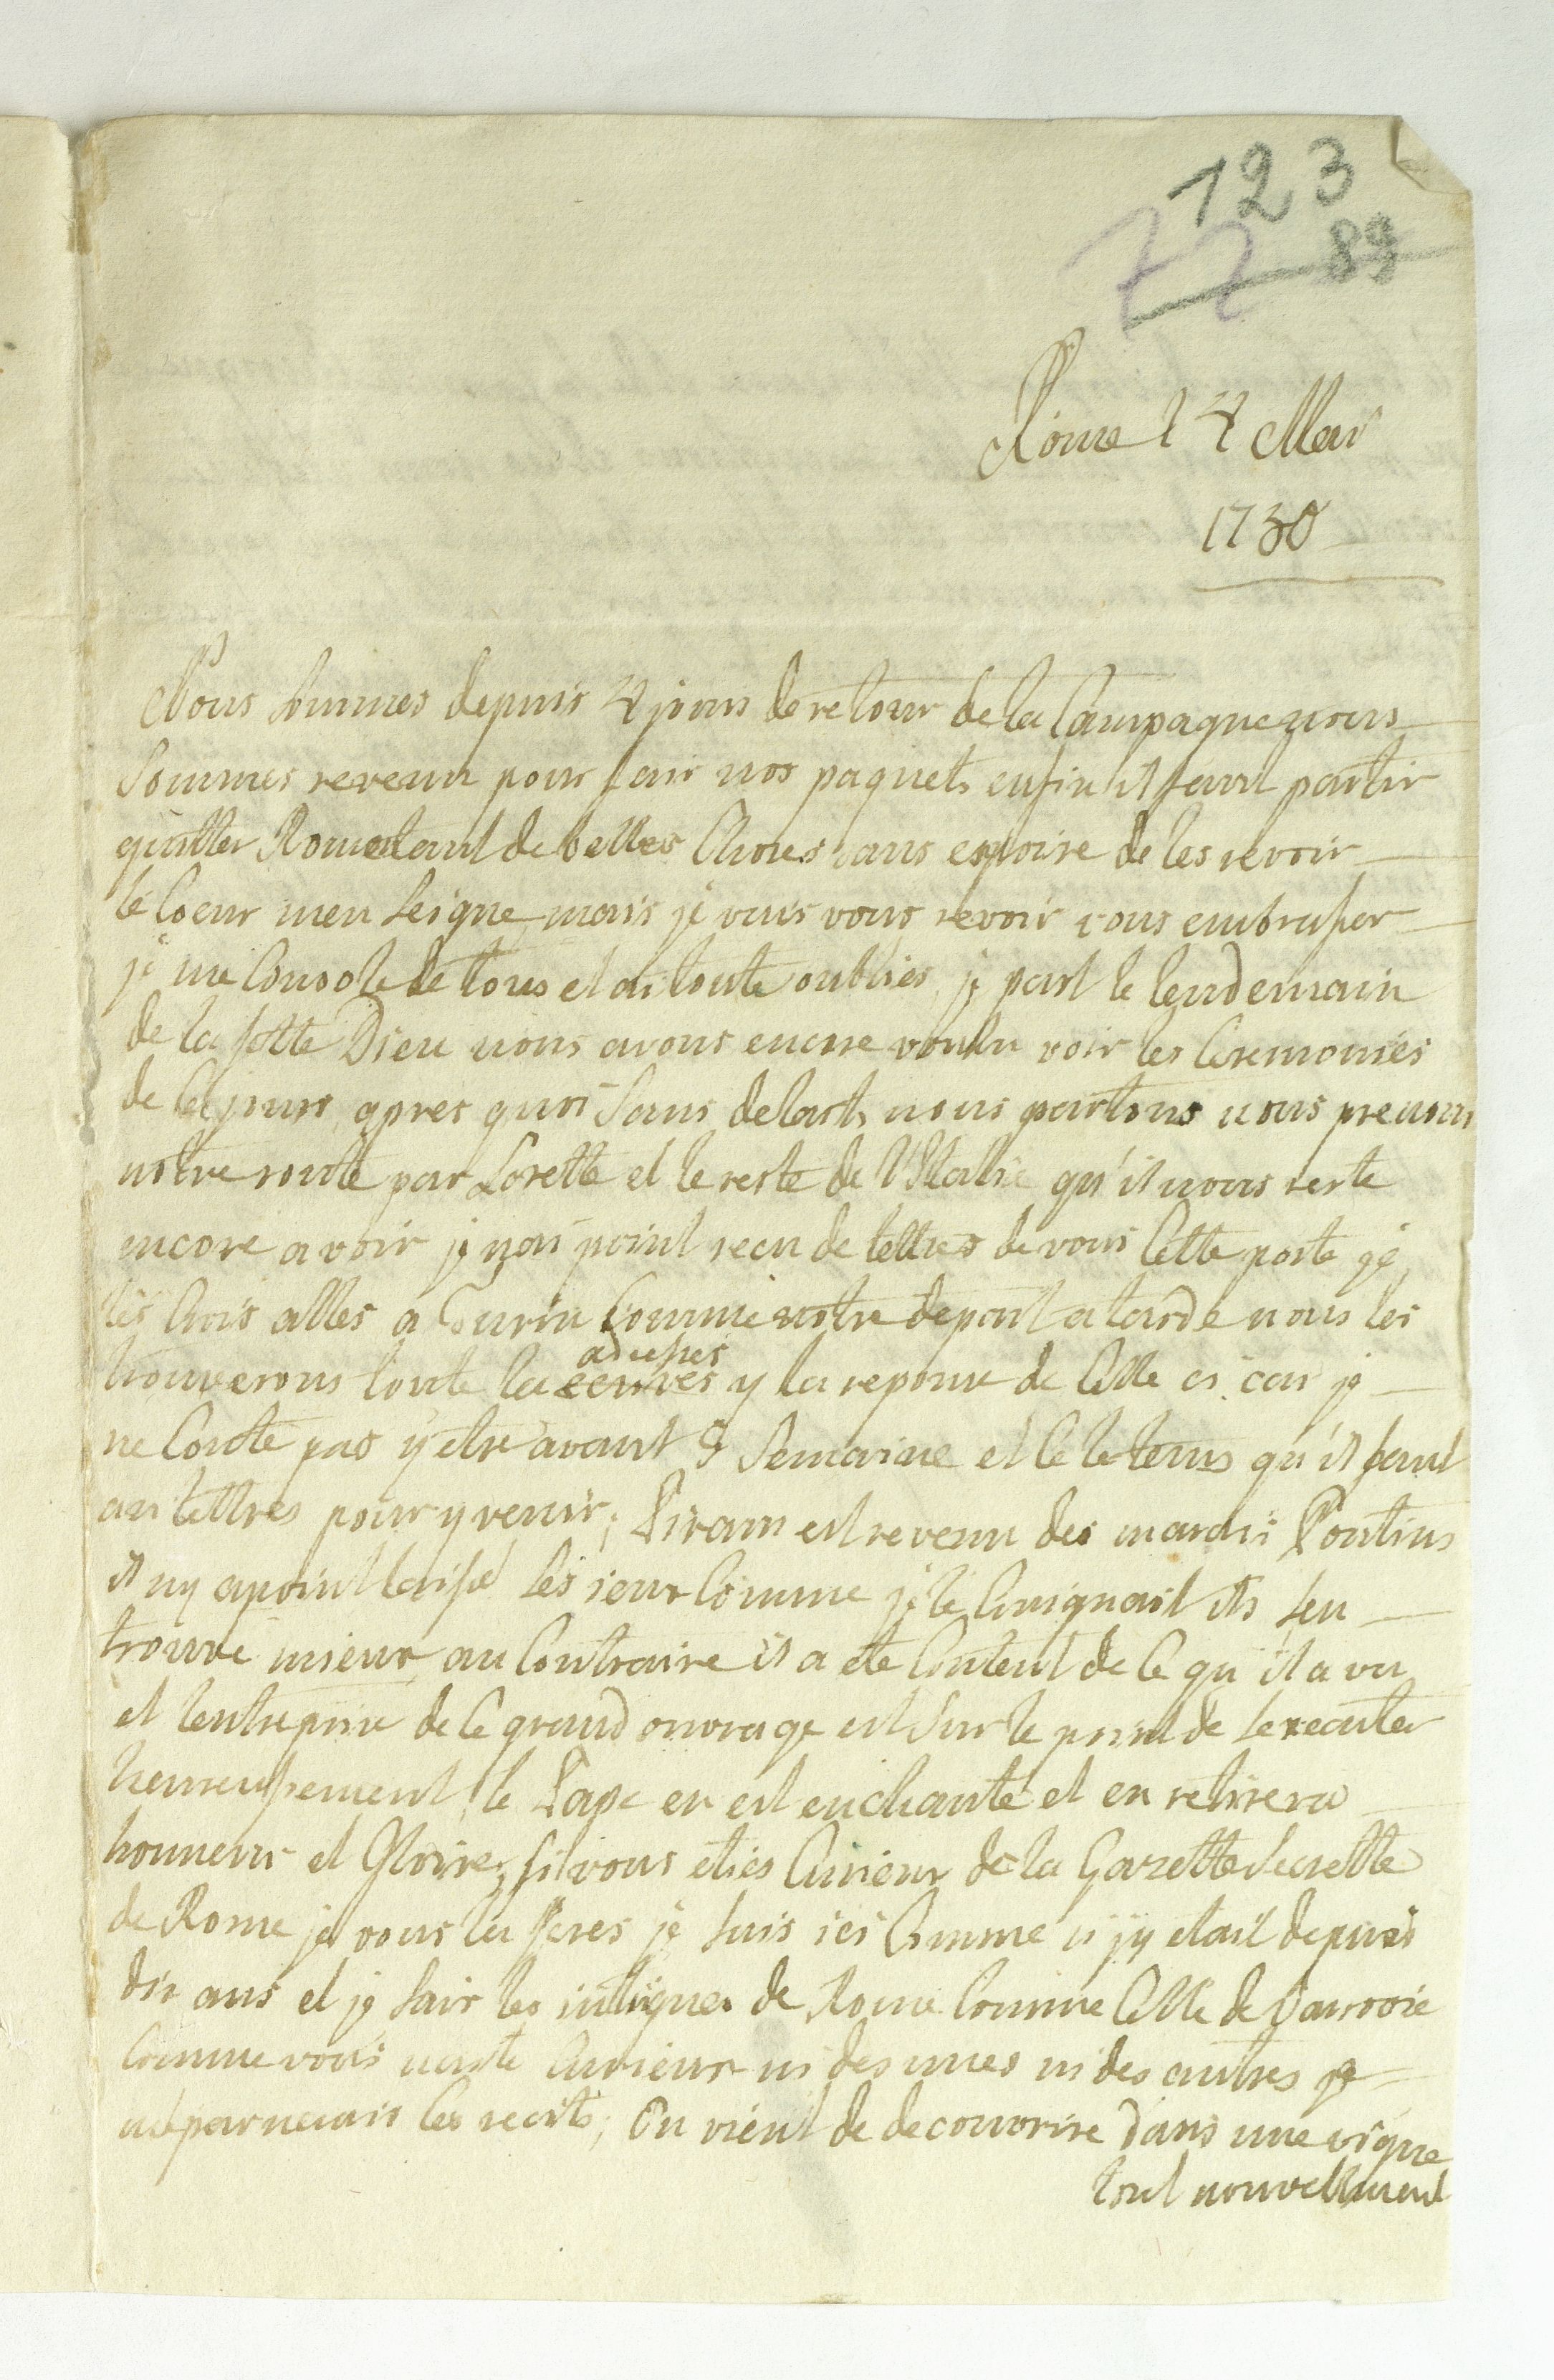 123
77 89
Rome l 4 Mai
1730
Nous sommes depuis 4 jours de retour de la Campagne nous
sommes revenu pour fair nos paquets enfin il faut partir
quitter Rome tant de belles Choses sans espoire de les revoir
le Coeur men seigne, mais je vais vous revoir vous embrasser
je me Console de tous et ai toute oublies, je part le lendemain
de la fette Dieu nous avons encore voulu voir les Ceremonies
de Cet jours, apres quoi sans delact, nous partons nous prenons
notre route par Lorette et le reste de l'Italie qu'il nous reste
encore a voir je nai point recu de lettres de vous Cette poste je
les Crois alles a Turin Comme notre depart a tarde nous les
trouverons toute la ecrives adresses y la reponse de Celle ci car je
ne Conte pas y etre avant 5 Semaine et Ce le tems qu'il faut
au lettres pour y venir; Piram est revenu des marais Pontins
il ny a point laisse les ieux Comme je le Craignait ils sen
trouve mieux au Contraire il a ete Content de Ce qu'il a vu
et lentreprise de Ce grand ouvrage est sur le point de sexecuter
heureussement, le Pape en est enchante et en retirera
honneur et Gloire, si vous eties Curieux de la Gazette Secrette
de Rome je vous la feres je suis ici Comme si jy etait depuis
dix ans et je sair les intrigues de Rome Comme Celle de Varsovie
Comme vous neste Curieux ni des unes ni des autres je
les recits; On vient de decouvrire dans une vigne
tout nouvellement